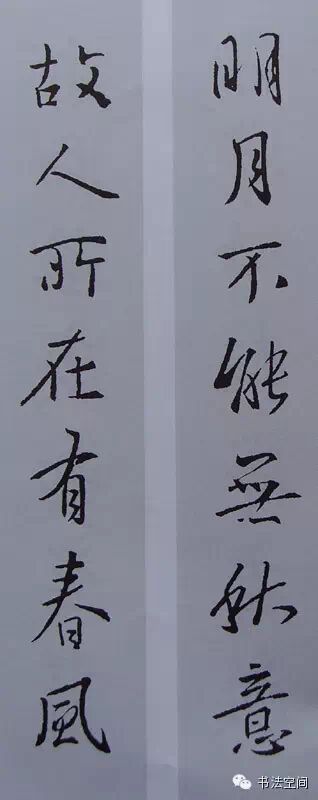 明月不能無秋意
故人所在有春風
书法空间